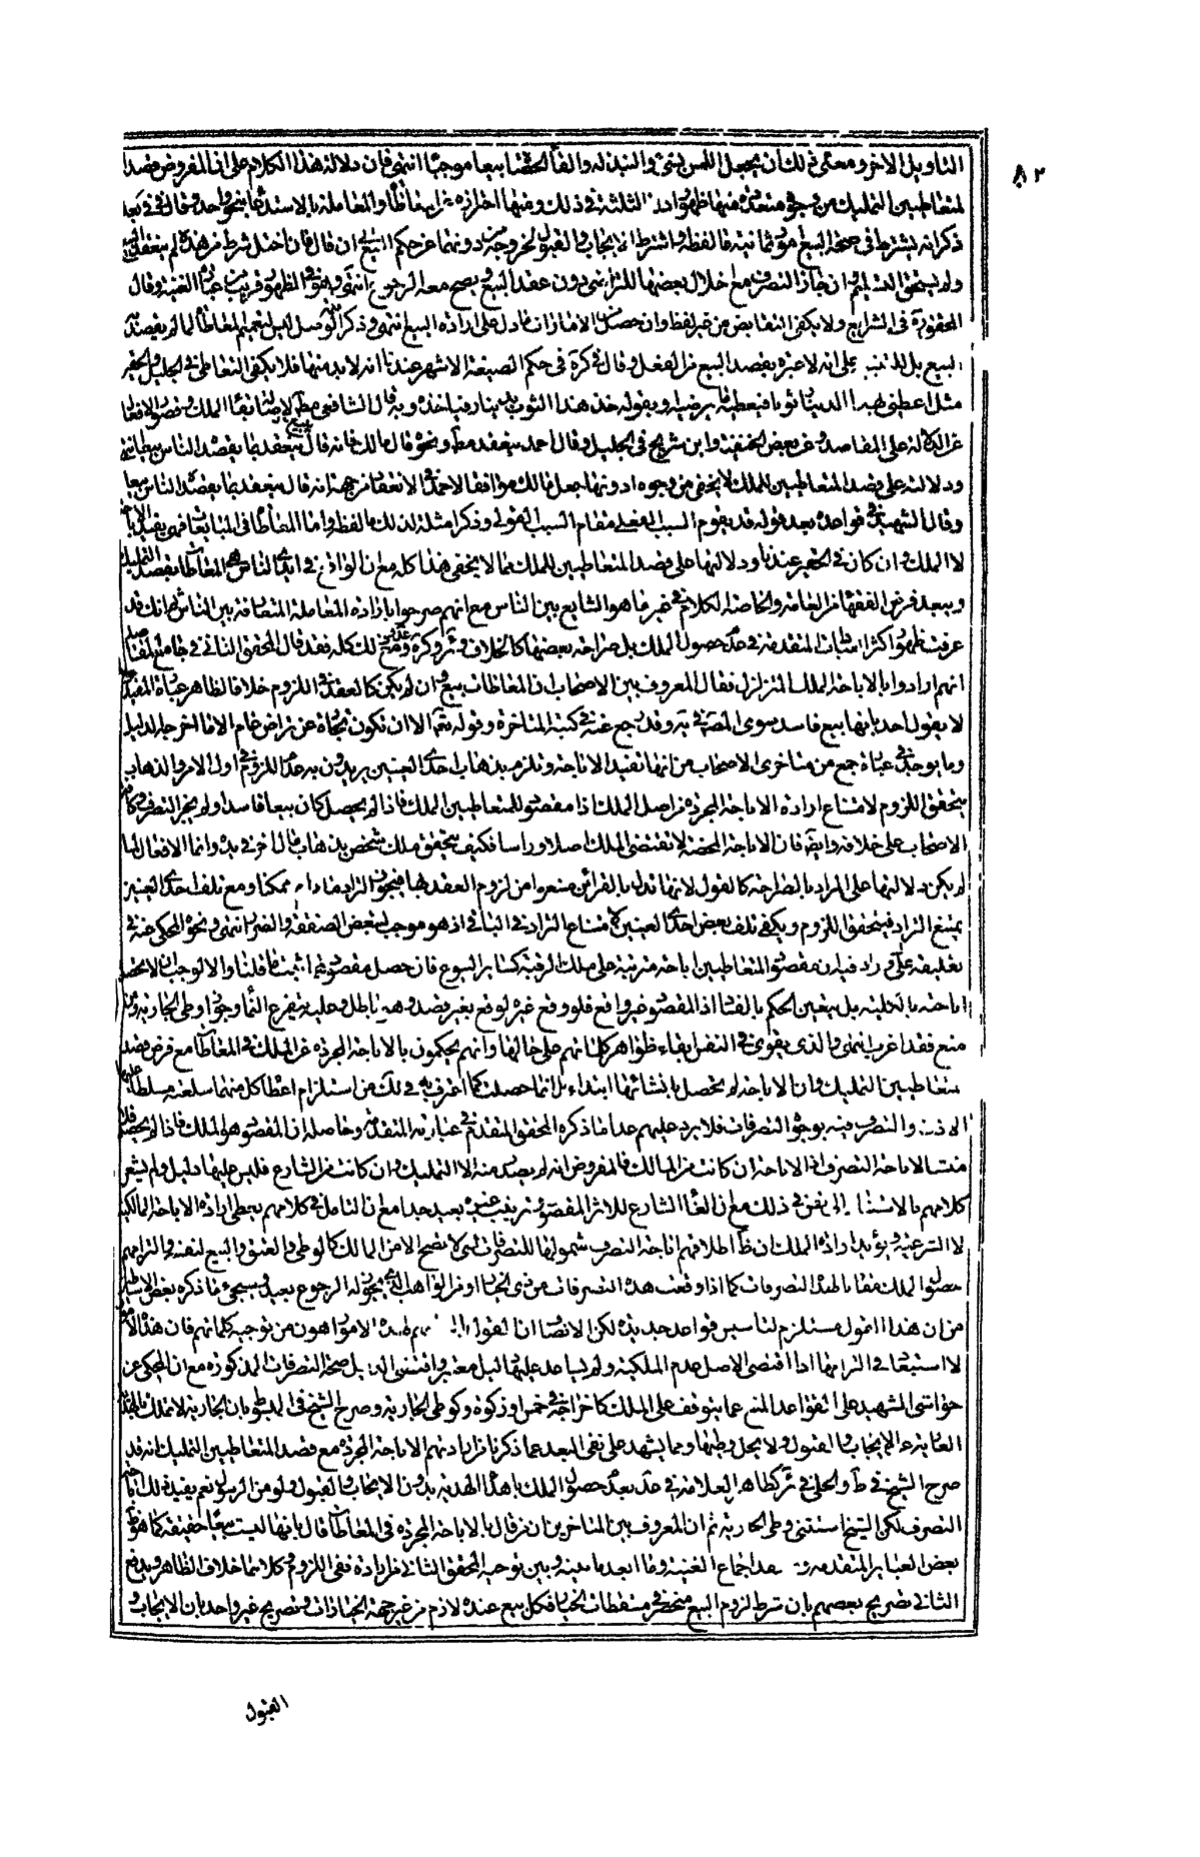 ٨٢
التاويل الاخر ومعنى ذلك ان يجعل اللمس بشئ والنبذ له والقاء الحصى بيعا موجبا انتهى فان دلالة هذا الكلام على ان المفروض قصد
المتعاطيين التمليك من وجوه متعددة منها ظهور ادلته الثلثة في ذلك ومنها احترازه عن المعاطاة والمعاملة بالاستدعاء بنحو واحد وقال في بعد
ذكر انه يشترط في صحة البيع امور ثمانية فالفظه واشترط الايجاب والقبول لخروجه من دونهما عن حكم البيع الى ان قال فان اختل شرط من هذه لم ينعقد البيع
ولم يستحق التسليم وان جاز التصرف مع اخلال بعضها للتراضي دون عقد البيع ويصح معه الرجوع انتهى وهو في الظهور قريب من عبارة الغنية وقال
المحقق ره في الشرايع ولا يكفى التقابض من غير لفظ وان حصل من الامارات ما دل على ارادة البيع انتهى وذكر كالوسيلة ليس لتعميم المعاطاة لما لم يقصد به
البيع بل للتنبيه على انه لا عبرة بقصد البيع من الفعل وقال في كرة في حكم الصيغة الاشهر عندنا انه لا بد منها فلا يكفى التعاطى في الجليل والحقير
مثل اعطنى بهذا الدينار ثوبا فيعطيه ما يرضيه او يقول خذ هذا الثوب بدينار فيأخذه وبه قال الشافعى مط لاصالة بقاء الملك وقصور الافعال
عن الدلالة على المقاصد وعن بعض الحنفية وابن شريح في الجليل وقال احمد ينعقد مط ونحوه قال مالك فانه قال ينعقد بما يقصده الناس بيعا انتهى
ودلالته على قصد المتعاطيين للملك لا يخفى من وجوه ادونها جعل مالك موافقا لاحمد في الانعقاد من جهة انه قال ينعقد بما يقصده الناس بيعا
وقال الشهيد في قواعده بعد قوله قد يقوم السبب الفعلى مقام السبب القولى وذكر امثلة لذلك ما لفظه واما المعاطاة في المبايعات فهى يفيد الاباحة
لا الملك وان كان في الحقير عندنا ودلالتها على قصد المتعاطيين للملك مما لا يخفى هذا كله مع ان الواقع في ايدى الناس هى المعاطاة بقصد التمليك
ويبعد فرض الفقهاء من العامة والخاصة الكلام في غير ما هو الشايع بين الناس مع انهم صرحوا بارادة المعاملة المتعارفة بين الناس ثم انك قد
عرفت ظهور اكثر العبارات المتقدمة في عدم حصول الملك بل صراحة بعضها كالخلاف وئر وكرة وعد ومع ذلك كله فقد قال المحقق الثانى في جامع المقاصد
انهم ارادوا بالاباحة الملك المتزلزل فقال المعروف بين الاصحاب ان المعاطاة بيع وان لم يكن كالعقد في اللزوم خلافا لظاهر عبارة المفيد
لا يقول احد بانها بيع فاسد سوى المصنف في ية وقد رجع عنه في كتبه المتاخرة وقوله تعالى الا ان تكون تجارة عن تراض عام الا ما اخرجه الدليل
وما يوجد في عبارة جمع من متاخرى الاصحاب من انها تفيد الاباحة وتلزم بذهاب احدى العينين يريدون به عدم اللزوم في اول الامر وبالذهاب
يتحقق اللزوم لامتناع ارادة الاباحة المجردة من اصل الملك اذ مقصود المتعاطيين الملك فاذا لم يحصل كان بيعا فاسدا ولم يجز التصرف وكافة
الاصحاب على خلافه وايضا فان الاباحة المحضة لا تقتضى الملك اصلا وراسا فكيف يتحقق ملك شخص بذهاب مال اخر في يده وانما الافعال لما
لم يكن دلالتها على المراد بالصراحة كالقول لانها تدل بالقرائن منعوا من لزوم العقد بها فيجوز التراد ما دام ممكنا ومع تلف احدى العينين
يمتنع التراد فيتحقق اللزوم ويكفى تلف بعض احدى العينين لامتناع التراد في الباقى اذ هو موجب لتبعض الصفقة والضرر انتهى ونحو المحكى عنه في
تعليقه على د وزاد فيه ان مقصود المتعاطيين اباحة مترتبة على ملك الرقبة كسائر البيوع فان حصل مقصودهما ثبت ما قلناه والا لوجب ان لا يحصل
اباحة بالكلية بل يتعين الحكم بالفساد اذ المقصود غير واقع فلو وقع غيره لوقع بغير قصد وهو باطل وعليه يتفرع النماء وجواز وطى الجارية ومن
منع فقد اغرب انتهى والذى يقوى في النفس ابقاء ظواهر كلماتهم على حالها وانهم يحكمون بالاباحة المجردة عن الملك في المعاطاة مع فرض قصد
المتعاطيين التمليك وان الاباحة لم يحصل بانشائها ابتداء بل انما حصلت كما اعترف به في لك من استلزام اعطاء كل منهما سلعته مسلطا عليها
الاذن والتصرف فيه بوجوه التصرفات فلا يرد عليهم عدا ما ذكره المحقق المتقدم في عبارته المتقدمة وحاصله ان المقصود هو الملك فاذا لم يحصل فلا
منشا لاباحة التصرف اذ الاباحة ان كانت من المالك فالمفروض انه لم يصدر منه الا التمليك وان كانت من الشارع فليس عليها دليل ولم يشعر
كلامهم بالاستناد الى نص في ذلك مع ان الغاء الشارع للاثر المقصود وترتيب غيره بعيد جدا مع ان التامل في كلامهم يعطى ارادة الاباحة المالكية
لا الشرعية ويؤيد ارادة الملك ان ظاهر اطلاقهم اباحة التصرف شمولها للتصرفات التى لا تصح الا من المالك كالوطى والعتق والبيع لنفسه والتزامهم
حصول الملك مقارنا لهذه التصرفات كما اذا وقعت هذه التصرفات من ذى الخيار او من الواهب الذى يجوز له الرجوع بعيد وسيجئ ما ذكره بعض الاساطين
من ان هذا القول مستلزم لتاسيس قواعد جديدة لكن الانصاف ان القول بالتزامهم لهذه الامور اهون من توجيه كلماتهم فان هذه الامور
لا استبعاد في التزامها اذا اقتضى الاصل عدم الملكية ولم يساعد عليها دليل معتبر واقتضى الدليل صحة التصرفات المذكورة مع ان المحكى عن
حواشى الشهيد على القواعد المنع عما يتوقف على الملك كاخراجه في خمس او زكوة وكوطى الجارية وصرح الشيخ في المبسوط بان الجارية لا تملك بالهدية
العارية عن الايجاب والقبول ولا يحل وطيها ومما يشهد على نفى البعد عما ذكرنا من ارادتهم الاباحة المجردة مع قصد المتعاطيين التمليك انه قد
صرح الشيخ في ط والحلى في ئر كظاهر العلامة في عد بعدم حصول الملك باهداء الهدية بدون الايجاب والقبول ولو من الرسول نعم يفيد ذلك اباحة
التصرف لكن الشيخ استثنى وطى الجارية ثم ان المعروف بين المتاخرين ان من قال بالاباحة المجردة في المعاطاة قال بانها ليست بيعا حقيقة كما هو ظاهر
بعض العبائر المتقدمة معقد اجماع الغنية وما ابعد ما بينه وبين توجيه المحقق الثانى من ارادة نفى اللزوم وكلاهما خلاف الظاهر ويدفع
الثانى تصريح بعضهم بان شرط لزوم البيع منحصر في مسقطات الخيار فكل بيع عنده لازم من غير جهة الخيارات وتصريح غير واحد بان الايجاب و
القبول